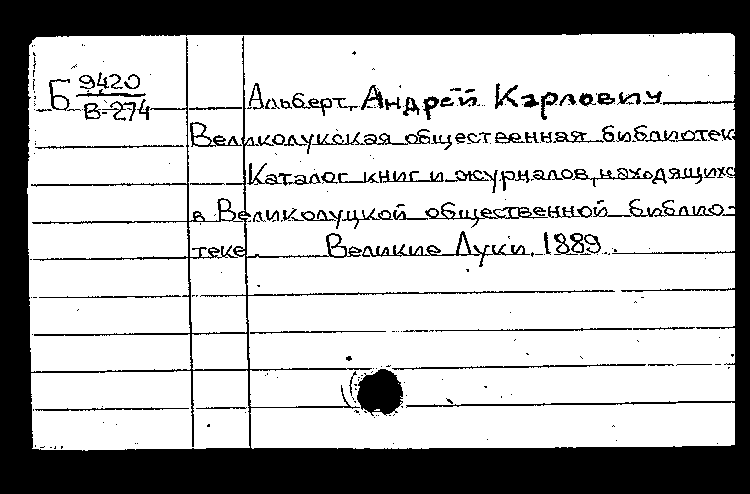 Б 9420
В-274
Альберт, Андрей Карлович
Великолукская общественная библиотек
Каталог книг и журналов, находящихс
в Великолуцкой общественной библио-
теке. Великие Луки. 1889.